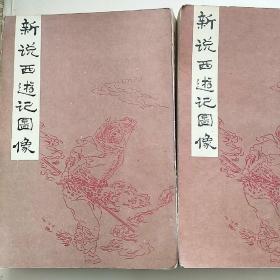 新说西遊记圖像
新说西遊记圖像